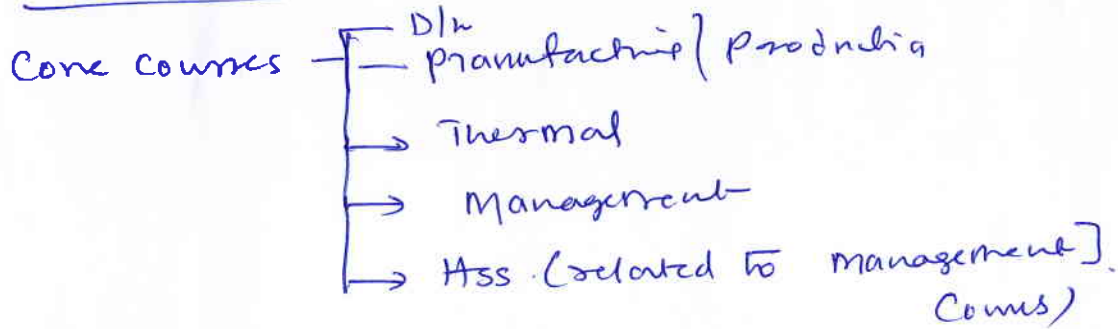 D/n
Core courses Manufacturing / Production
Thermal
Management
HSS (related to management].
Courses)